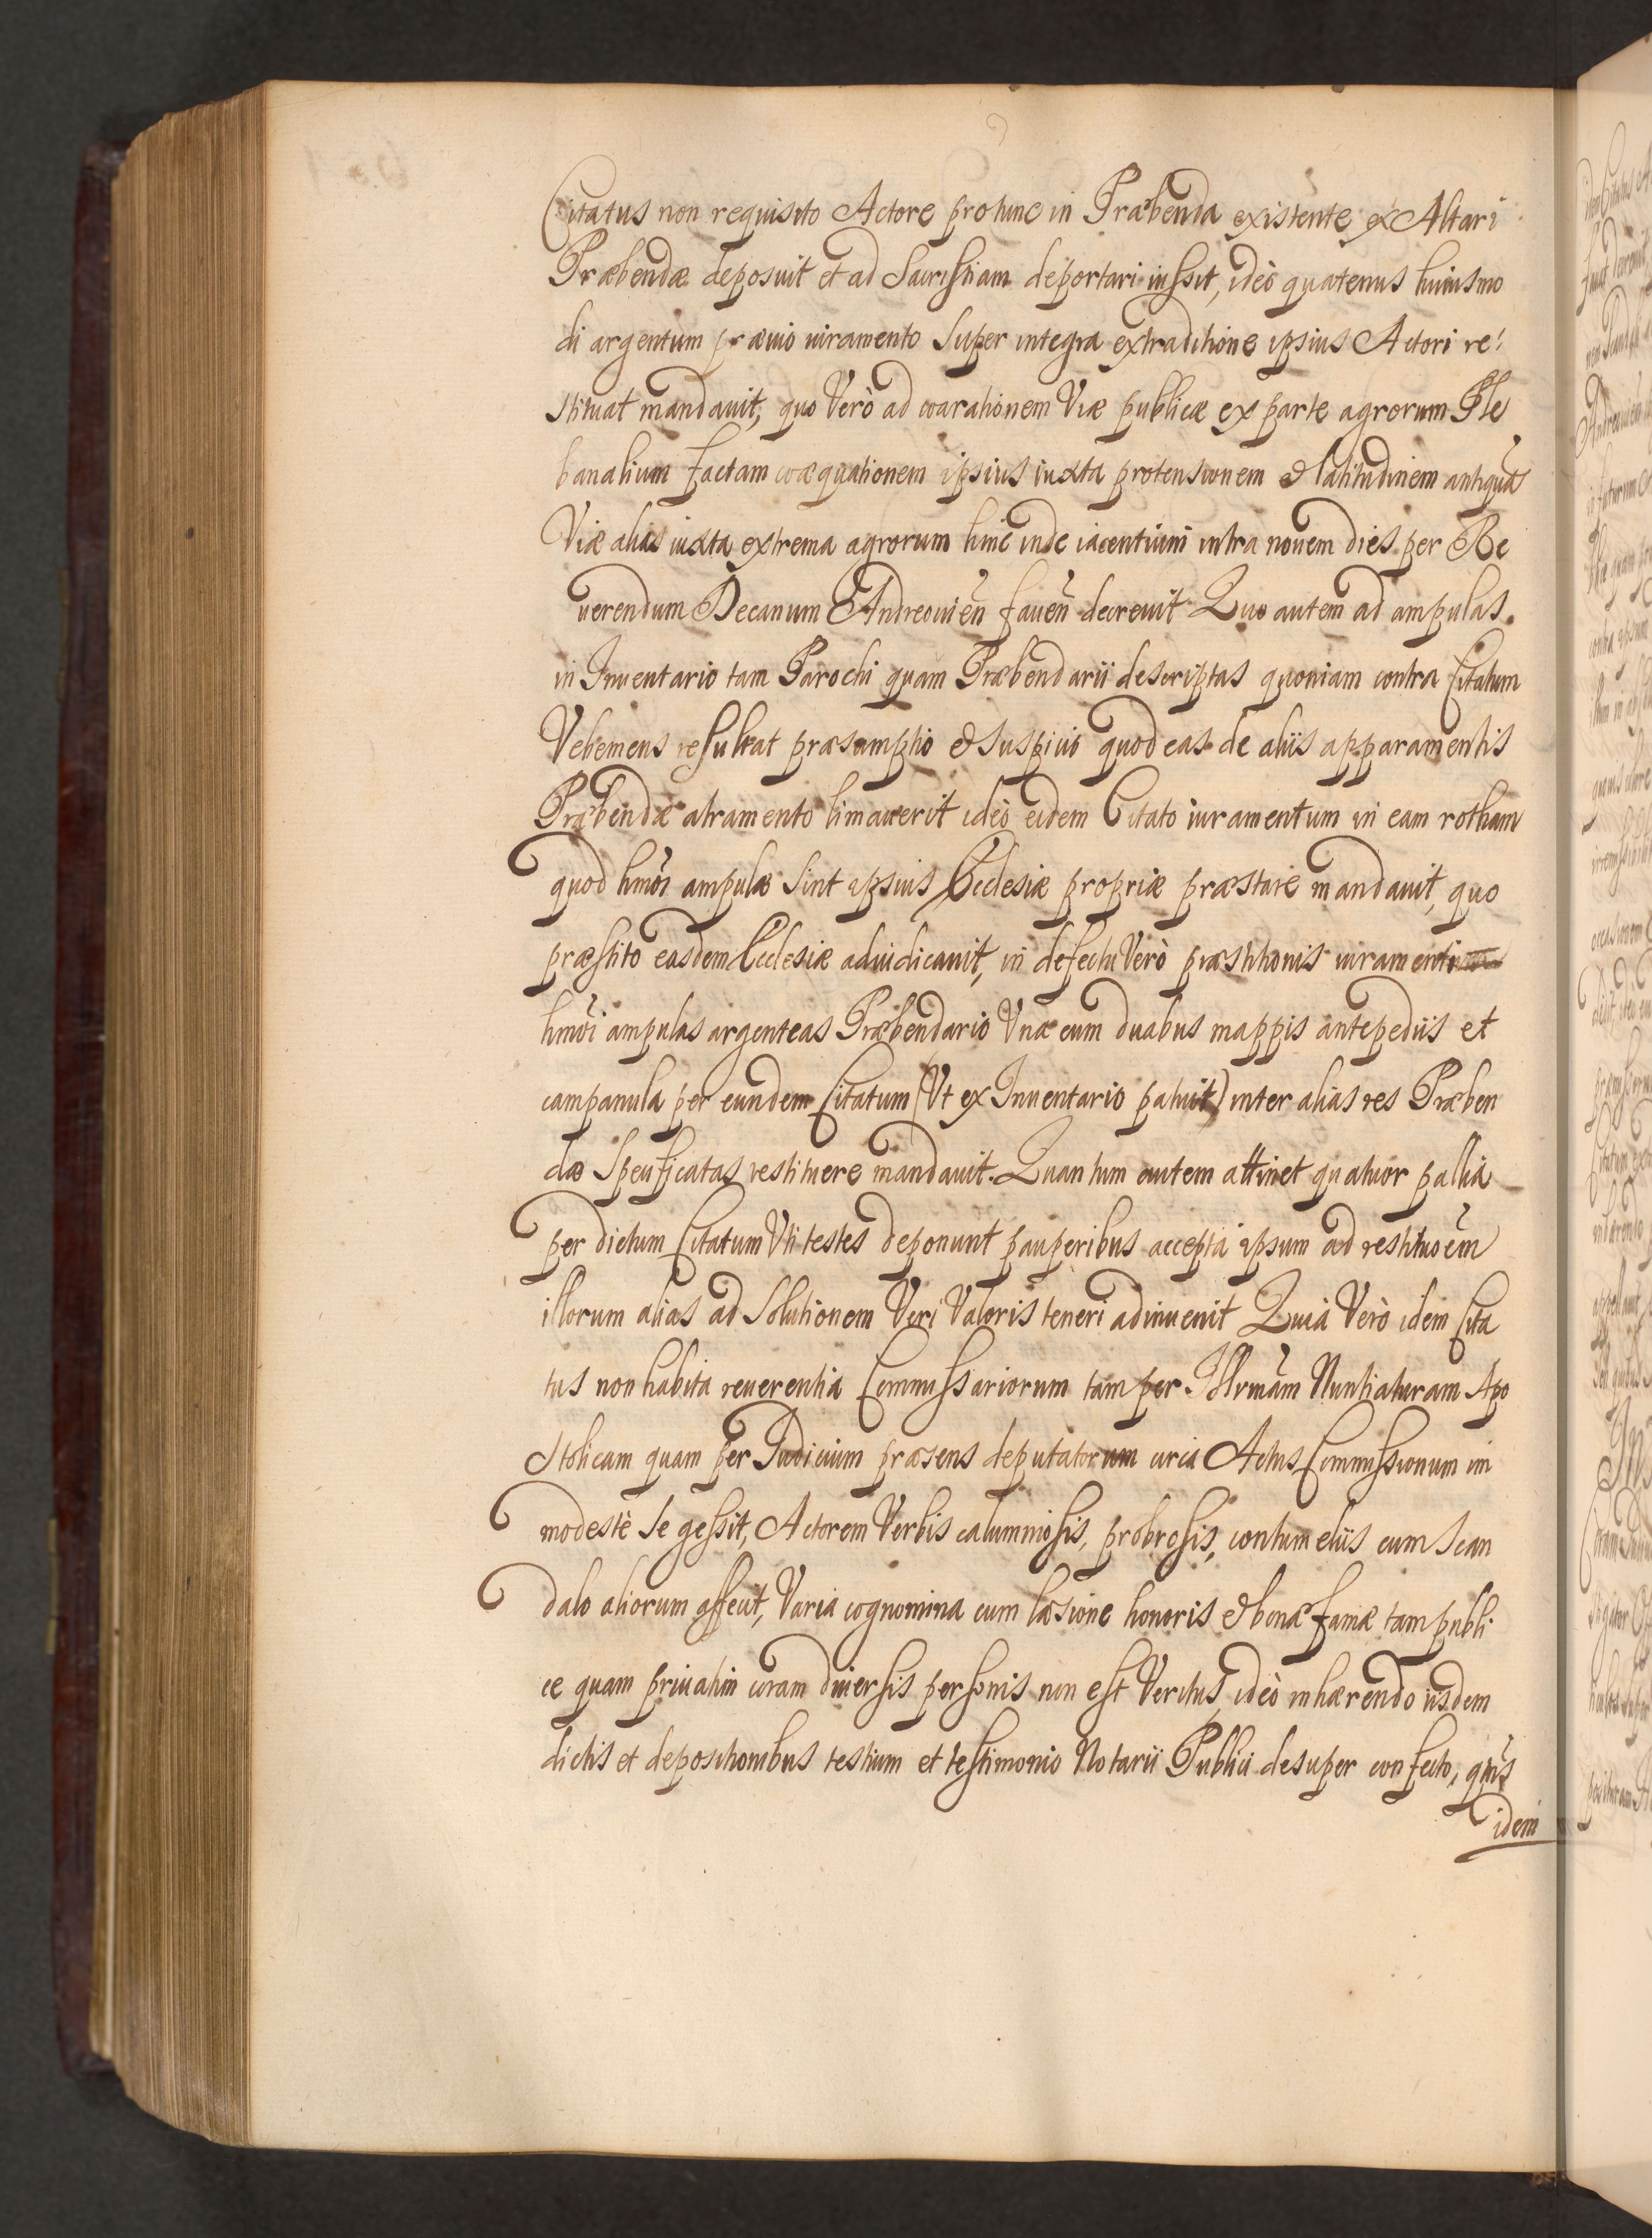 Citatus non requisito Actore protunc in Præbenda existente ex Altari
Præbendæ deposuit et ad Sacristiam deportari iussit, ideò quatenus huiusmo
di argentum prævio iuramento super integra extraditione ipsius Actori re-
stituat mandauit, quo Verò ad coarationem Viæ publicæ ex parte agrorum Ple
banalium factam coæquationem ipsius iuxta protensionem et latitudinem antiquā
Viæ alias iuxta extrema agrorum hinc inde iacentium intra nouem dies per Re
uerendum Decanum Andreouien̄ fauen̄ decreuit Quo autem ad ampulas
in Inuentario tam Parochi quam Præbendarii descriptas quoniam contra Citatum
Vehemens resultat præsumptio et suspicio quod eas de aliis apparamentis
Præbendæ atramento limauerit ideò eidem Citato iuramentum in eam rotham
quod hmōi ampulæ sint ipsius Ecclesiæ propriæ præstare mandauit, quo
præstito easdem Ecclesiæ adiudicauit, in defectu Verò præstitionis iuramenti
hmōi ampulas argenteas Præbendario Vnæ cum duabus mappis antepediis et
campanula per eundem Citatum (Vt ex Inuentario patuit) inter alias res Præben
dæ specificatas restituere mandauit. Quantum autem attinet quatuor pallia
per dictum Citatum Vti testes deponunt pauperibus accepta ipsum ad restituōēm
illorum alias ad solutionem Veri Valoris teneri adinuenit Quia Verò idem Cita
tus non habita reuerentia Commissariorum tam per Illrmām Nuntiaturam Apo
stolicam quam per Iudicium præsens deputatorum circa Actus Commissionum im
modestè se gessit, Actorem Verbis calumniosis, probrosis, contumeliis cum scan
dalo aliorum affecit, Varia cognomina cum læsione honoris et bonæ famæ tam publi
ce quam priuatim coram diuersis personis non est Veritus, ideò inhærendo iisdem
dictis et depositionibus testium et testimonio Notarii Publici desuper confecto, qui̅s
idem